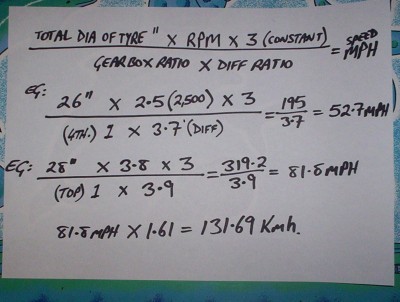 TOTAL DIA OF TYRE " X RPM X 3 (CONSTANT)
GEARBOX RATIO X DIFF RATIO
= SPEED MPH
EG: 26" X 2.5 (2,500) X 3
(4TH.) 1 X 3.7 (DIFF)
= 195
3.7
= 52.7 MPH
EG: 28" X 3.8 X 3
(TOP) 1 X 3.9
= 319.2
3.9
= 81.8 MPH
81.8 MPH X 1.61 = 131.69 Kmh.